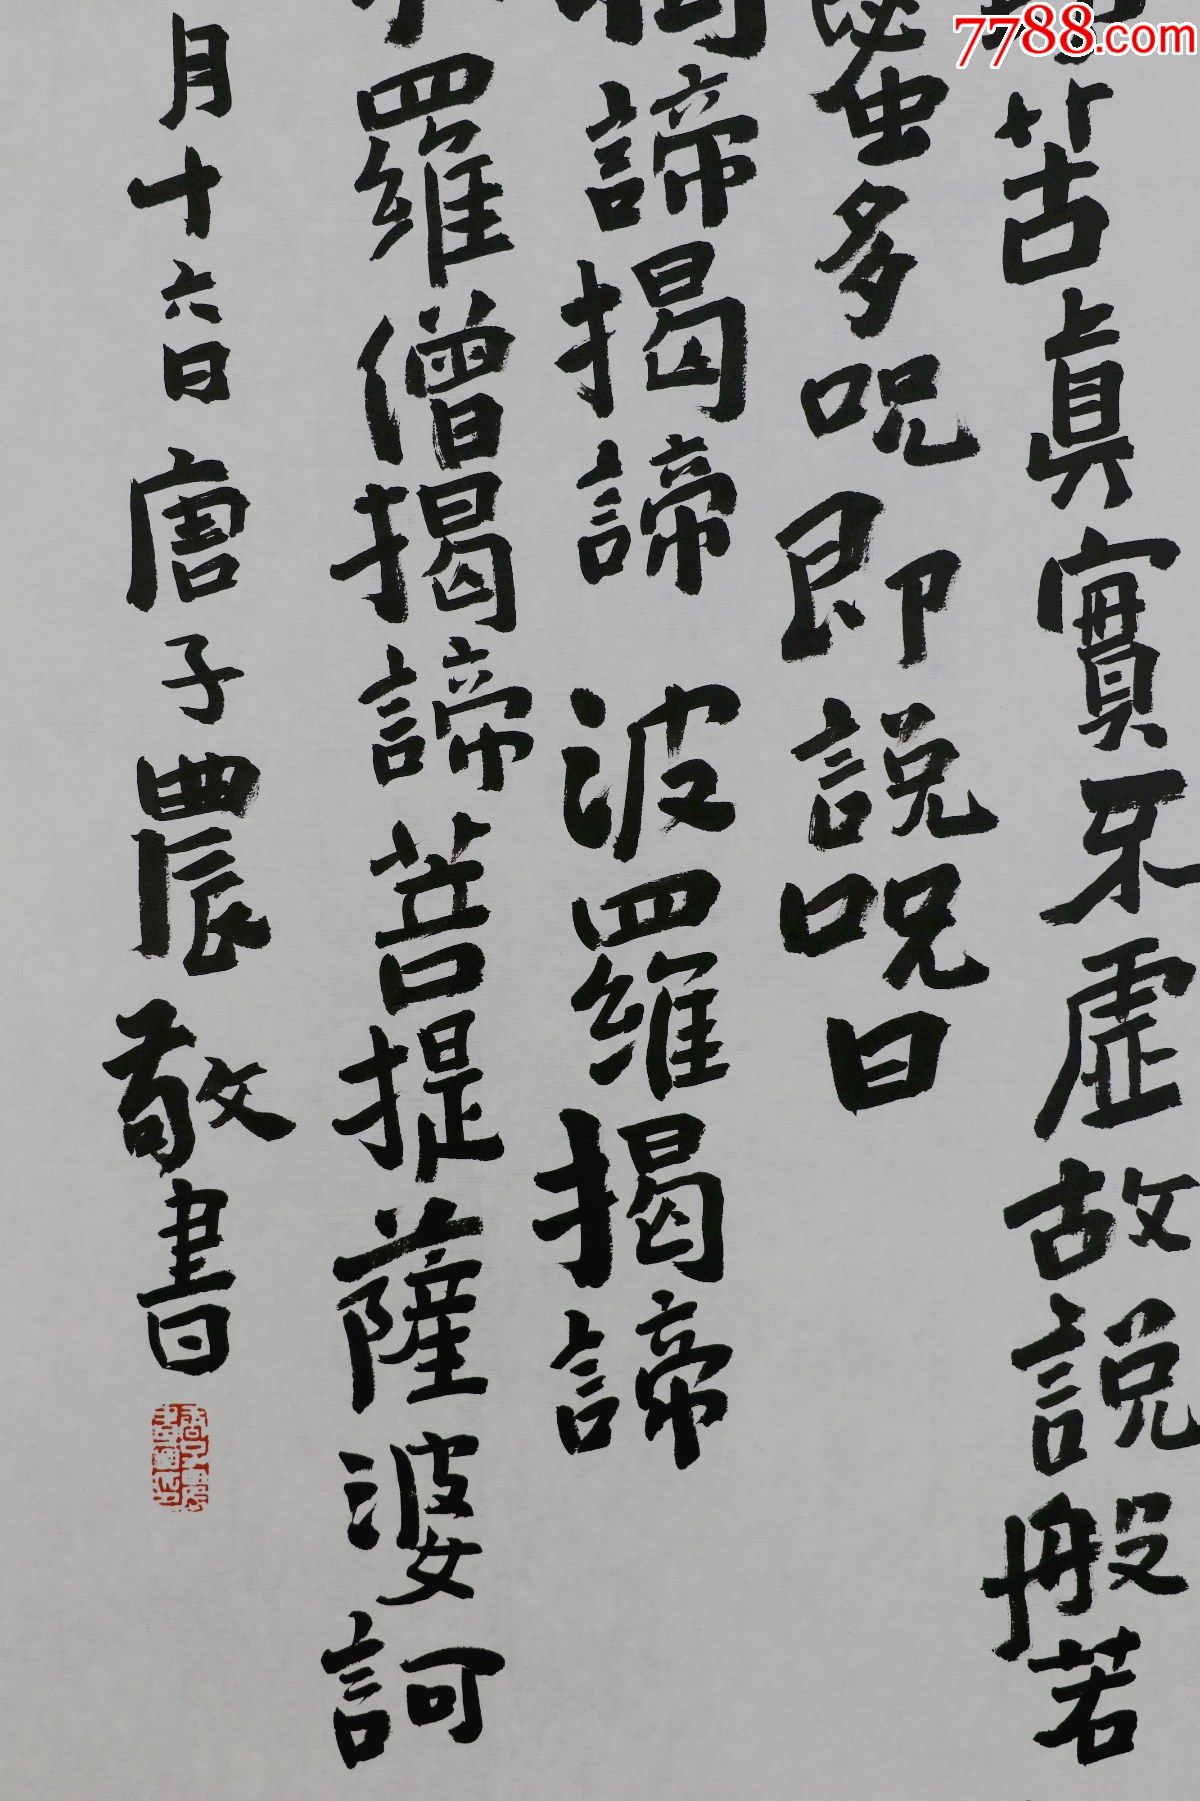 7788.com
苦真實不虛故說般若
蜜多咒即說咒曰
揭諦揭諦 波羅揭諦
羅僧揭諦菩提薩婆訶
月十六日唐子農敬書